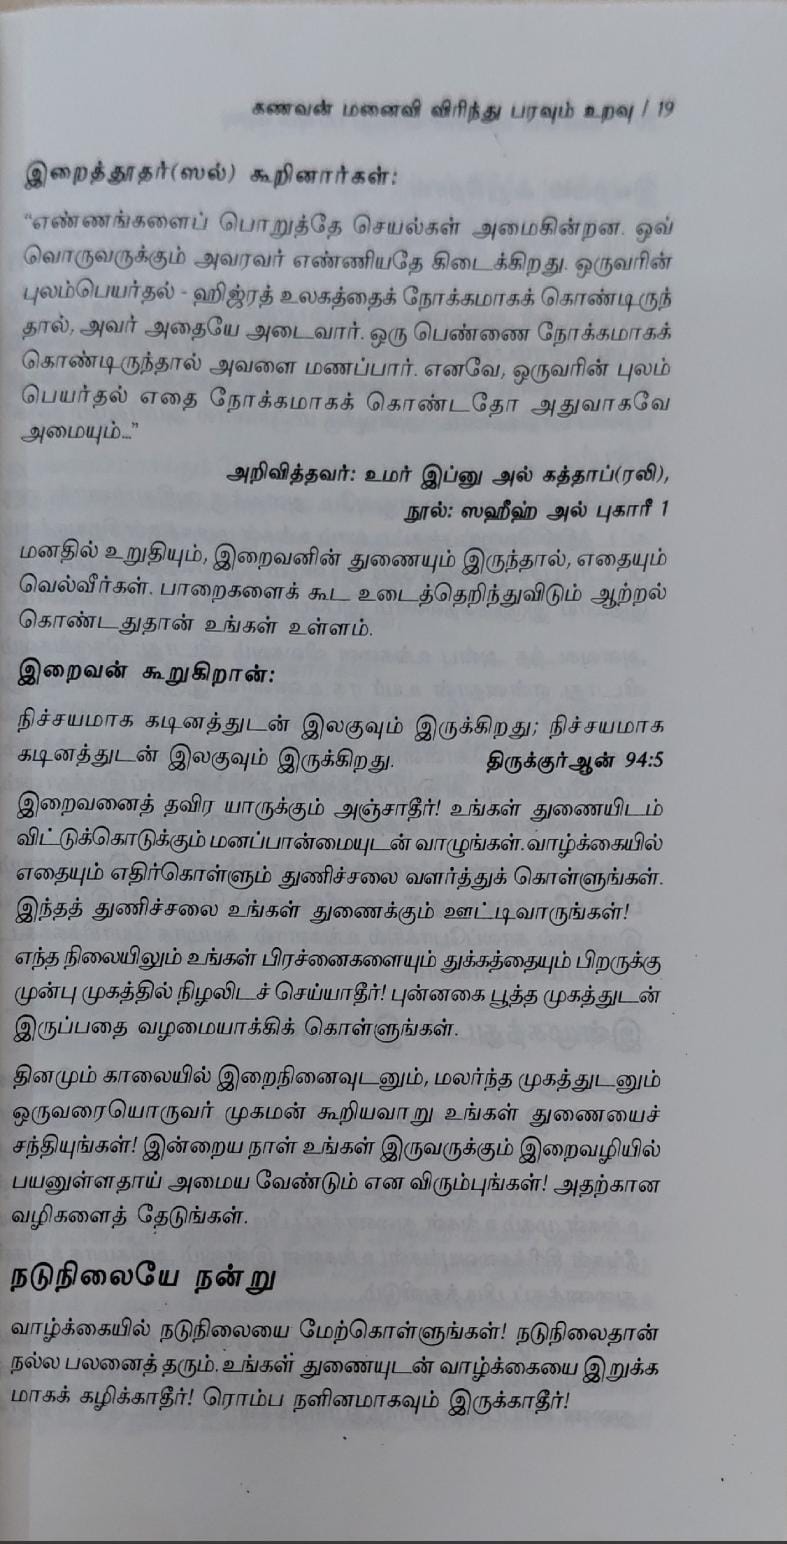 கணவன் மனைவி விரிந்து பரவும் உறவு / 19
இறைத்தூதர்(ஸல்) கூறினார்கள்:
“எண்ணங்களைப் பொறுத்தே செயல்கள் அமைகின்றன. ஒவ்
வொருவருக்கும் அவரவர் எண்ணியதே கிடைக்கிறது. ஒருவரின்
புலம்பெயர்தல் - ஹிஜ்ரத் உலகத்தைக் நோக்கமாகக் கொண்டிருந்
தால், அவர் அதையே அடைவார். ஒரு பெண்ணை நோக்கமாகக்
கொண்டிருந்தால் அவளை மணப்பார். எனவே, ஒருவரின் புலம்
பெயர்தல் எதை நோக்கமாகக் கொண்டதோ அதுவாகவே
அமையும்...”
அறிவித்தவர்: உமர் இப்னு அல் கத்தாப்(ரலி),
நூல்: ஸஹீஹ் அல் புகாரீ 1
மனதில் உறுதியும், இறைவனின் துணையும் இருந்தால், எதையும்
வெல்வீர்கள். பாறைகளைக் கூட உடைத்தெறிந்துவிடும் ஆற்றல்
கொண்டதுதான் உங்கள் உள்ளம்.
இறைவன் கூறுகிறான்:
நிச்சயமாக கடினத்துடன் இலகுவும் இருக்கிறது; நிச்சயமாக
கடினத்துடன் இலகுவும் இருக்கிறது. திருக்குர்ஆன் 94:5
இறைவனைத் தவிர யாருக்கும் அஞ்சாதீர்! உங்கள் துணையிடம்
விட்டுக்கொடுக்கும் மனப்பான்மையுடன் வாழுங்கள். வாழ்க்கையில்
எதையும் எதிர்கொள்ளும் துணிச்சலை வளர்த்துக் கொள்ளுங்கள்.
இந்தத் துணிச்சலை உங்கள் துணைக்கும் ஊட்டிவாருங்கள்!
எந்த நிலையிலும் உங்கள் பிரச்னைகளையும் துக்கத்தையும் பிறருக்கு
முன்பு முகத்தில் நிழலிடச் செய்யாதீர்! புன்னகை பூத்த முகத்துடன்
இருப்பதை வழமையாக்கிக் கொள்ளுங்கள்.
தினமும் காலையில் இறைநினைவுடனும், மலர்ந்த முகத்துடனும்
ஒருவரையொருவர் முகமன் கூறியவாறு உங்கள் துணையைச்
சந்தியுங்கள்! இன்றைய நாள் உங்கள் இருவருக்கும் இறைவழியில்
பயனுள்ளதாய் அமைய வேண்டும் என விரும்புங்கள்! அதற்கான
வழிகளைத் தேடுங்கள்.
நடுநிலையே நன்று
வாழ்க்கையில் நடுநிலையை மேற்கொள்ளுங்கள்! நடுநிலைதான்
நல்ல பலனைத் தரும். உங்கள் துணையுடன் வாழ்க்கையை இறுக்க
மாகக் கழிக்காதீர்! ரொம்ப நளினமாகவும் இருக்காதீர்!